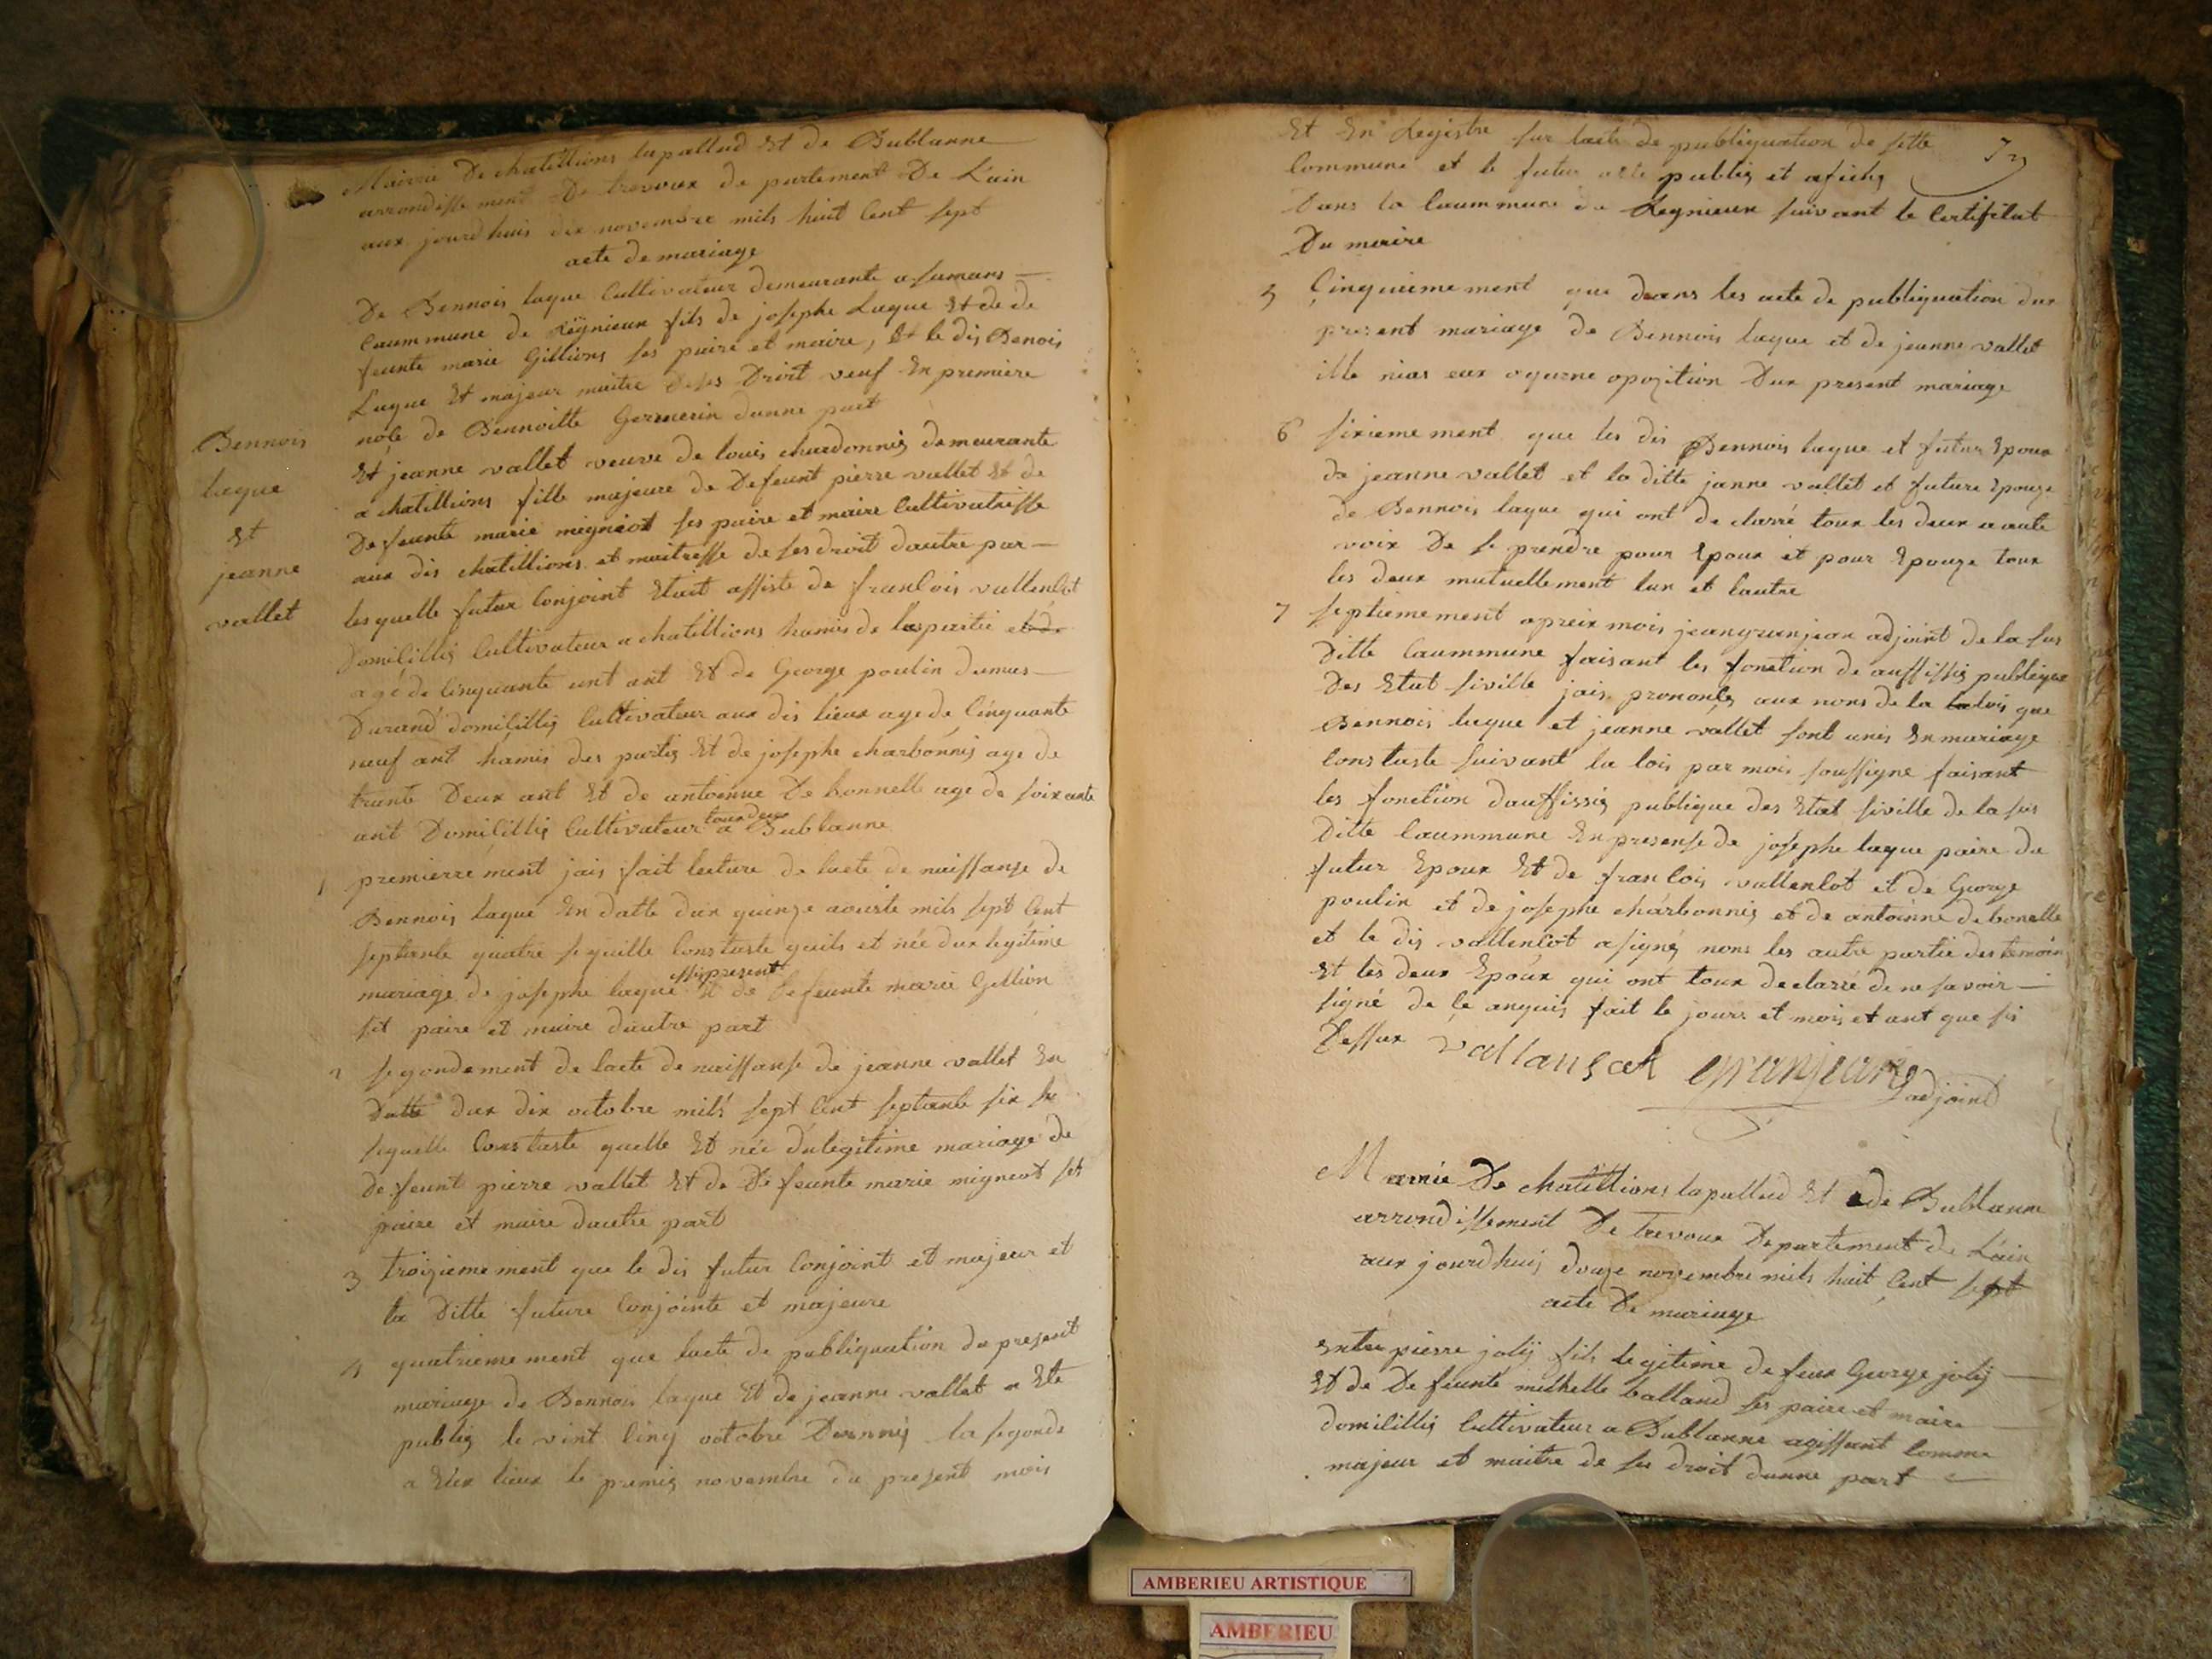 Mairie De chatillions lapallud Et de Bublanne
arrondisse ment De trevoux de partement De L'ain
aux jourdhuis dix novembre mils huit Cent sept
acte de mariage
De Bennois luque Cultivateur demeurante a samans
Caummune de Reÿnieux fils de josephe Luque Et de de
feunte marie Gillions ses paire et maire, Et le dis Benois
Luque Et majeur maitre de ses Droit veuf En premiere
nôle de Bennoitte Germerin dunne part
Et jeanne vallet veuve de louis chardonnis demeurante
a chatillions fille majeure de Defeunt pierre vallet Et de
De feunte marie migniot ses paire et maire Cultivatrisse
aux dis chatillions et maitresse de ses droit dautre par
les quelle futur Conjoint Etait assiste de franCois vallenCot
DomiCillis Cultivateur a chatillions hamis de las partie et de
agé de Cinquante unt ant Et de George poulin dumas
Durand domiCillis Cultivateur aux dis lieux age de Cinquante
neuf ant hamis des partis Et de josephe charbonnis age de
trante Deux ant Et de antoinne De bonnelle age de soixante
ant DomiCillis Cultivateur tous deux a Bublanne
Bennois
luque
Et
jeanne
vallet
1 premierrement jais fait lecture de lacte de naissanse de
Bennois luque En datte dux quinze aouste mils sept Cent
septante quatre sequille Constaste quils et née dux legitime
mariage de josephe luque issy present Et de Defeunte marie Gillion
set paire et maire dautre part
2 segondement de lacte de naissanse de jeanne vallet En
datte dux dix octobre mils sept Cent septante six se
sequelle Constaste quelle Et née du legitime mariage de
De feunt pierre vallet Et de De feunte marie migneot set
paire et maire dautre part
3 troizieme ment que le dis futur Conjoint et majeur et
la Ditte future Conjointe et majeure
4 quatrieme ment que lacte de publiquation du present
mariage de Bennois luque Et de jeanne vallet a Ete
publis le vint Cinq octobre Dernnis la segonde
a Eux lieux le premis novembre du present mois
Et En Registre sur lacte de publiquation de sette
Commune et le futur ete publis et afiches
Dans la Caummune de Regnieux suivant le CertifiCat
Du maire
5 Cinquieme ment que dans les acte de publiquation dux
present mariage de Bennois luque et de jeanne vallet
ille nias eux ogunne opozition Dux present mariage
6 sixieme ment que les dis Bennois luque et futur Epoux
de jeanne vallet et la ditte janne vallet et future Epouze
de Bennois luque qui ont de clarré toux les deux a aute
voix De se prendre pour Epoux et pour Epouze toux
les deux mutuellement lun et lautre
7 septiemement apreix mois jeangranjean adjoint de la sus
Ditte Caummune faisant les fonction de auffissis publique
Des Etat siville jais prononcé aux nons de la la lois que
Bennois luque et jeanne vallet sont unis En mariage
Constaste suivant la lois par mois soussigne faisant
les fonction dauffissis publique des Etat siville de la sus
Ditte Caummune En presense de josephe luque paire du
futur Epoux Et de franCois vallenCot et de George
poulin et de josephe charbonnis et de antoinne de bonelle
et le dis vallenCot a signé nons les autre partie des temoin
Et les deux Epoux qui ont toux declarré de ne savoir
signé de Ce anquis fait le jours et mois et ant que sis
Dessux vallansat granjean adjoint
Marie De chatillions lapallud Et de Bublanne
arrondissement De trevoux Departement de L'ain
aux jourdhuis douze novembre mils huit Cent sept
acte De mariage
Entre pierre jolÿ fils legitime de feux George jolÿ
Et de De feunte michelle balland ses paire et maire
domiCillis Cultivateur a Bublanne agissant Comme
majeur et maitre de ses droit dunne part
AMBERIEU ARTISTIQUE
AMBERIEU